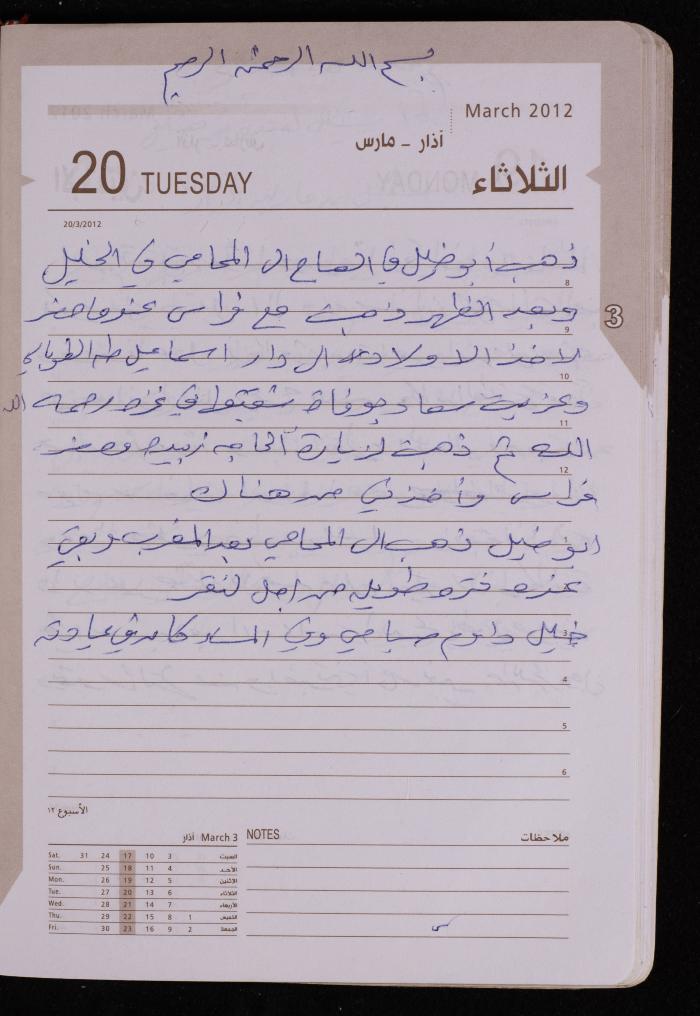 بسم الله الرحمن الرحيم
March 2012
آذار - مارس
20 TUESDAY
الثلاثاء
20/3/2012
ذهب أبو خليل في الصباح الى المحامي في الخليل
8
وبعد الظهر ذهبت مع فراس عندما حضر
9
3
لاخذ الاولاد الى دار اسماعيل طه
10
وعزيت سعاد بوفاة في غزه رحمه الله
11
الله ثم ذهبت لزيارة الحاجه زبيده وحضر
12
فراس وأخذني من هناك
ابو خليل ذهب الى المحامي بعد المغرب وبقي
عنده فتره طويله من اجل
خليل داوم صباحي وفي المساء كان في عيادته
3
4
5
6
الأسبوع ١٢
March 3 آذار
Sat. 31 24 17 10 3 السبت
Sun. 25 18 11 4 الأحد
Mon. 26 19 12 5 الاثنين
Tue. 27 20 13 6 الثلاثاء
Wed. 28 21 14 7 الأربعاء
Thu. 29 22 15 8 1 الخميس
Fri. 30 23 16 9 2 الجمعة
NOTES
ملاحظات